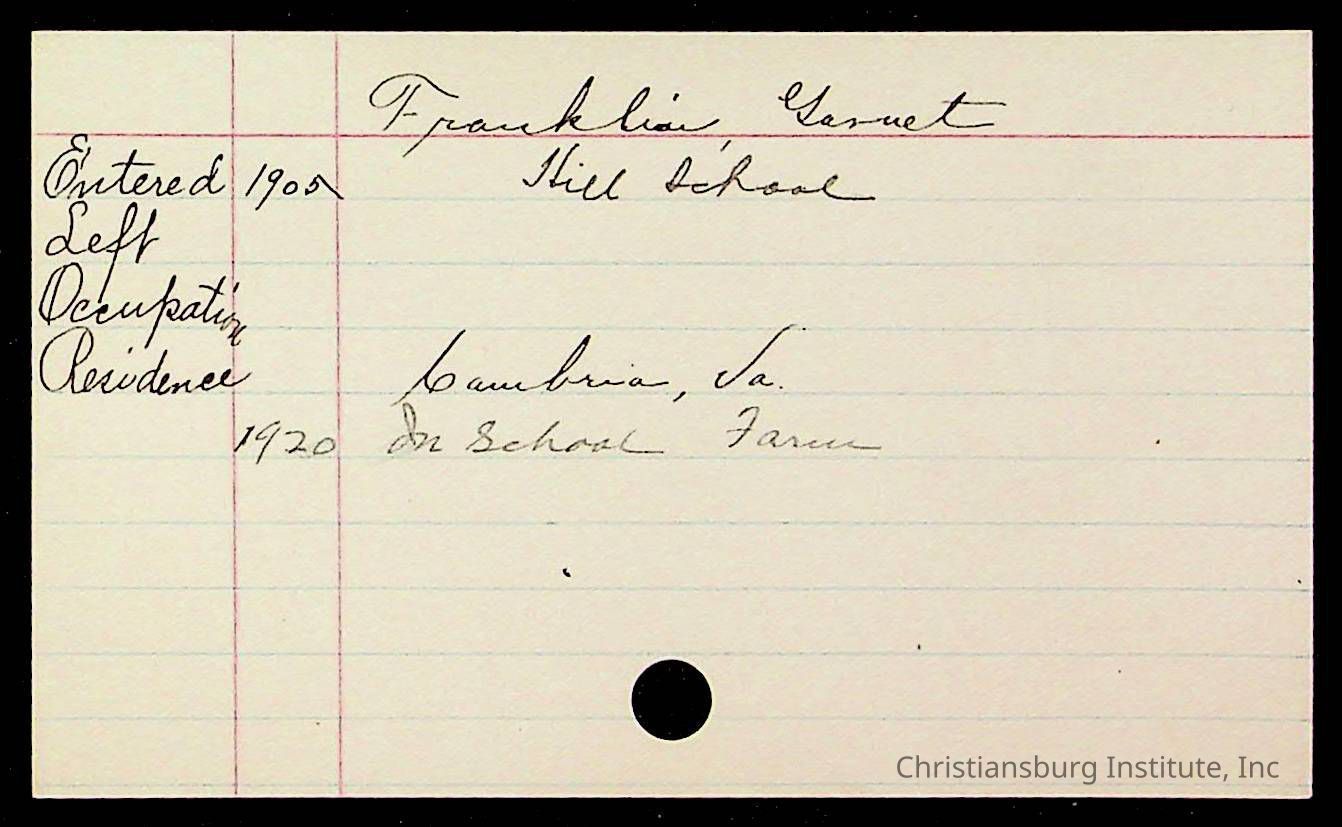 Franklin, Garnet
Entered 1905 Hill School
Left
Occupation
Residence Cambria, Va.
1920 In School Farm
Christiansburg Institute, Inc